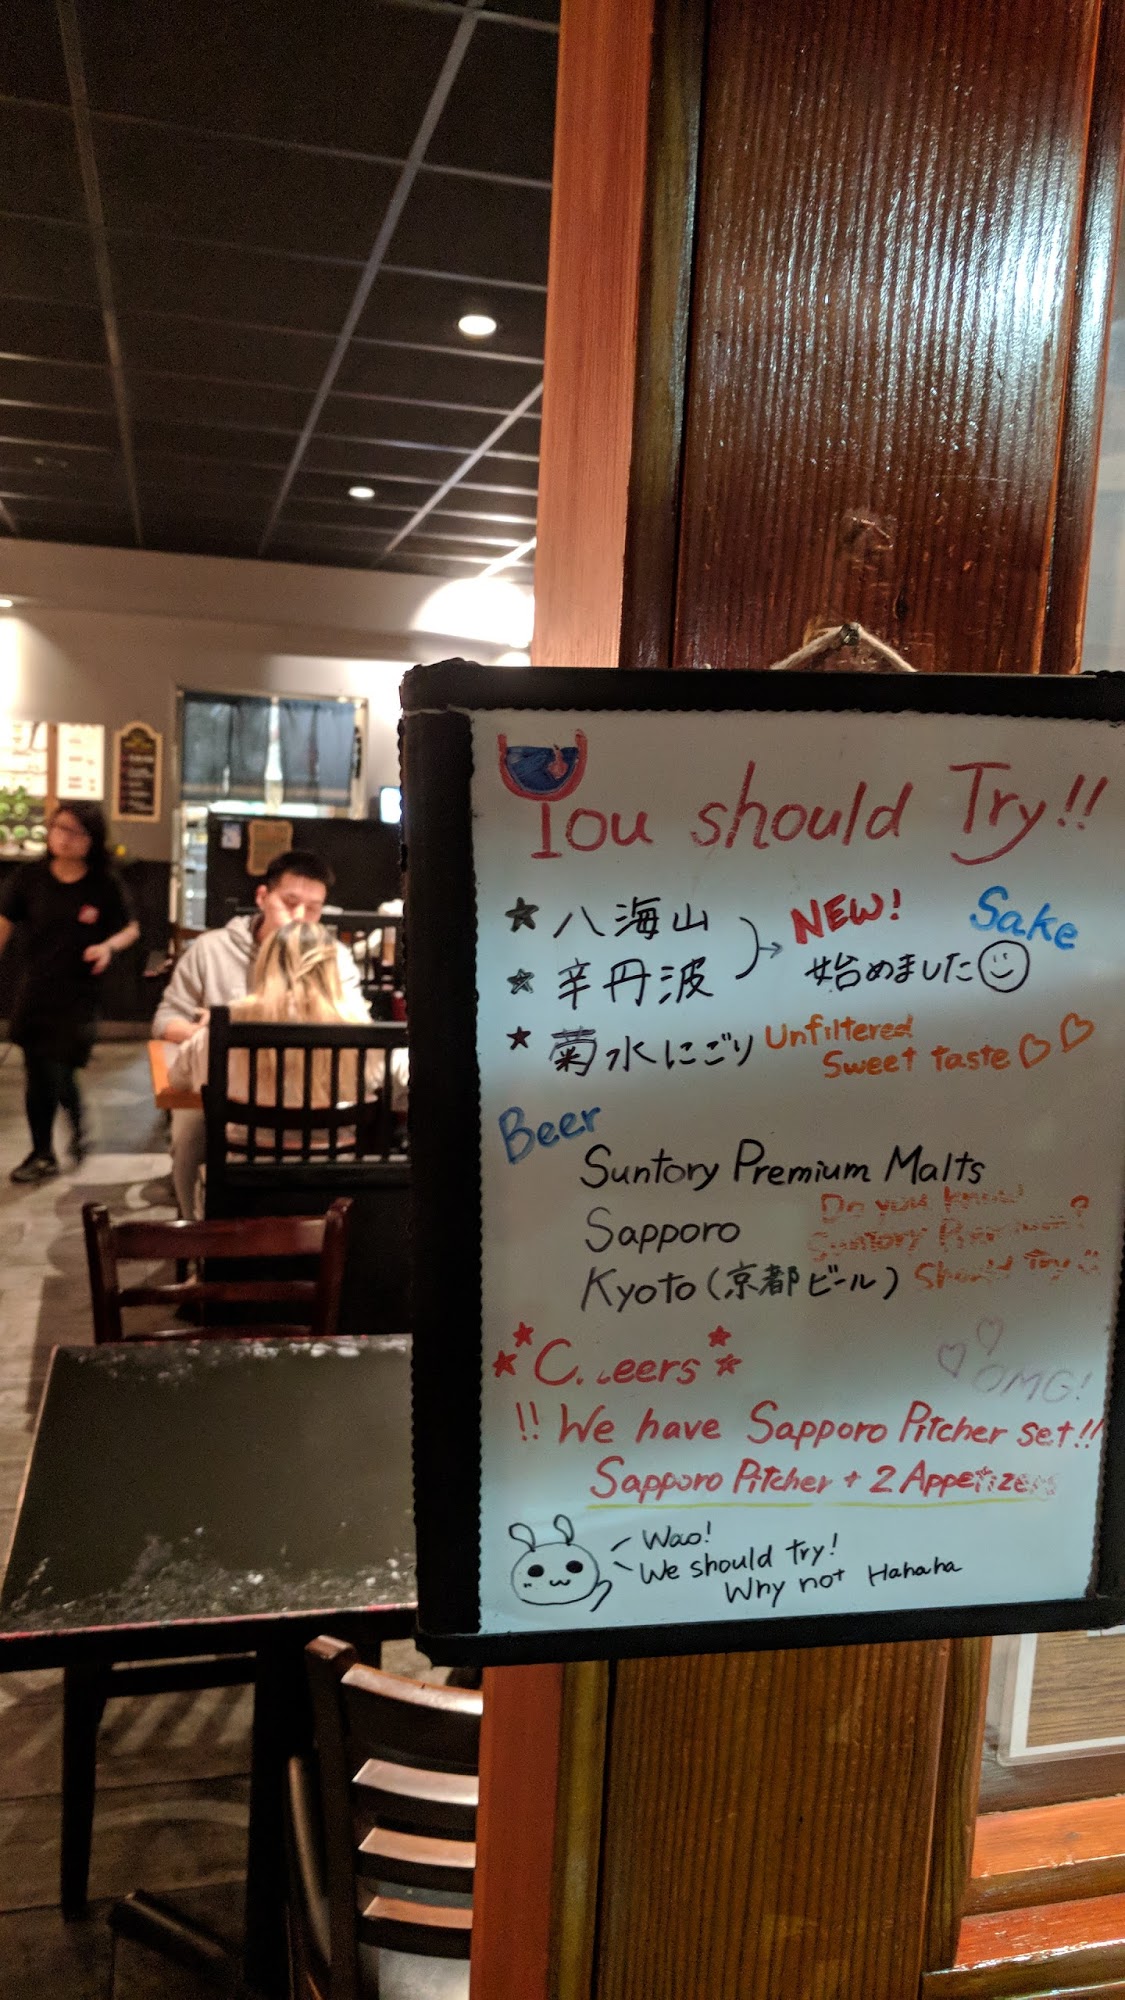 You should Try!!
★ 八海山
★ 辛丹波
NEW!
始めました
Sake
★ 菊水にごり
Unfiltered
Sweet taste
Beer
Suntory Premium Malts
Sapporo
Kyoto (京都ビール)
Do you know
Suntory Premium?
Should Try
Cheers
OMG!
!! We have Sapporo Pitcher set!!
Sapporo Pitcher + 2 Appetizers
Wao!
We should try!
Why not Hahaha